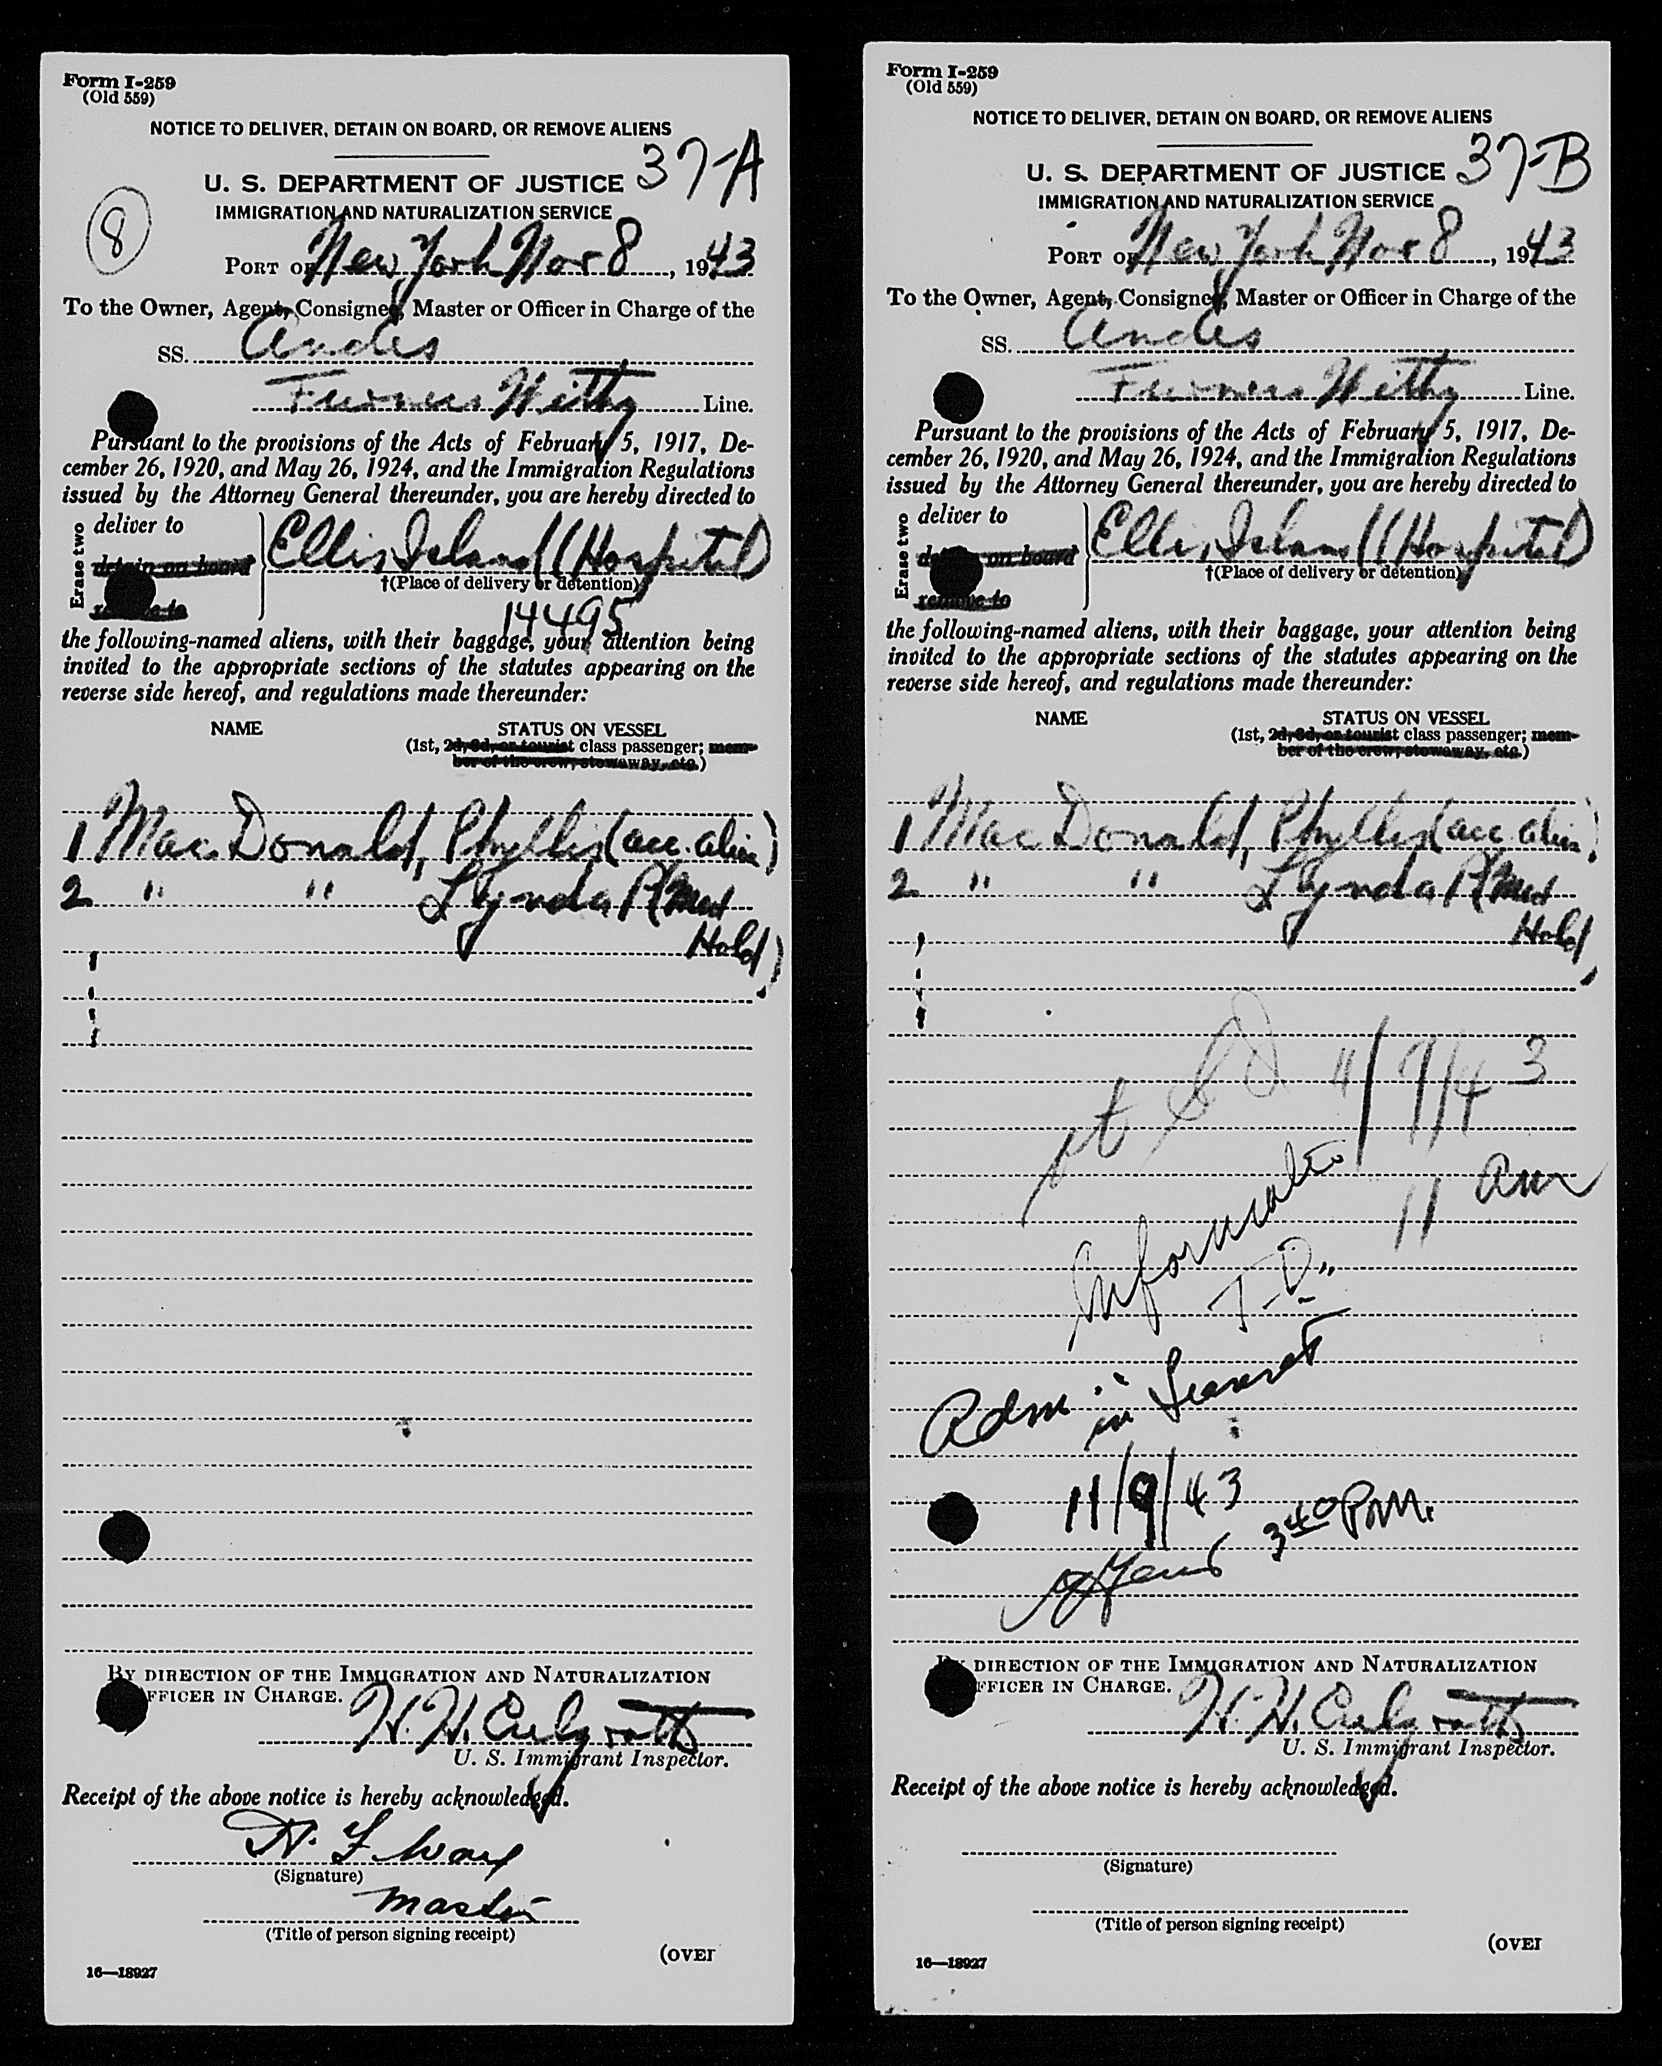 Form I-259
(Old 559)
NOTICE TO DELIVER, DETAIN ON BOARD, OR REMOVE ALIENS
37-A
U. S. DEPARTMENT OF JUSTICE
IMMIGRATION AND NATURALIZATION SERVICE
8
PORT OF New York Nov 8, 1943
To the Owner, Agent, Consignee, Master or Officer in Charge of the
SS. Andes
Furness Withy Line.
Pursuant to the provisions of the Acts of February 5, 1917, De-
cember 26, 1920, and May 26, 1924, and the Immigration Regulations
issued by the Attorney General thereunder, you are hereby directed to
Erase two
deliver to
detain on board
remove to
Ellis Island (Hospital)
†(Place of delivery or detention)
14495
the following-named aliens, with their baggage, your attention being
invited to the appropriate sections of the statutes appearing on the
reverse side hereof, and regulations made thereunder:
NAME
STATUS ON VESSEL
(1st, 2d, 3d, or tourist class passenger; mem-
ber of the crew, stowaway, etc.)
1 MacDonald, Phyllis (acc. alien)
2 " " Lynda P (Med
Hold)
BY DIRECTION OF THE IMMIGRATION AND NATURALIZATION
OFFICER IN CHARGE.
H. H.
U. S. Immigrant Inspector.
Receipt of the above notice is hereby acknowledged.
(Signature)
Master
(Title of person signing receipt)
(OVER
16—18927
Form I-259
(Old 559)
NOTICE TO DELIVER, DETAIN ON BOARD, OR REMOVE ALIENS
37-B
U. S. DEPARTMENT OF JUSTICE
IMMIGRATION AND NATURALIZATION SERVICE
PORT OF New York Nov 8, 1943
To the Owner, Agent, Consignee, Master or Officer in Charge of the
SS. Andes
Furness Withy Line.
Pursuant to the provisions of the Acts of February 5, 1917, De-
cember 26, 1920, and May 26, 1924, and the Immigration Regulations
issued by the Attorney General thereunder, you are hereby directed to
Erase two
deliver to
detain on board
remove to
Ellis Island (Hospital)
†(Place of delivery or detention)
the following-named aliens, with their baggage, your attention being
invited to the appropriate sections of the statutes appearing on the
reverse side hereof, and regulations made thereunder:
NAME
STATUS ON VESSEL
(1st, 2d, 3d, or tourist class passenger; mem-
ber of the crew, stowaway, etc.)
1 MacDonald, Phyllis (acc. alien)
2 " " Lynda P (Med
Hold)
11/9/43
11 am
T-D
Adm in Transit
11/9/43
3 40 P.M.
BY DIRECTION OF THE IMMIGRATION AND NATURALIZATION
OFFICER IN CHARGE.
H. H.
U. S. Immigrant Inspector.
Receipt of the above notice is hereby acknowledged.
(Signature)
(Title of person signing receipt)
(OVER
16—18927